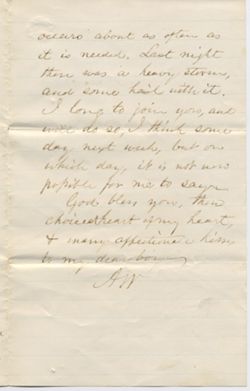 occurs about as often as
it is needed. Last night
there was a heavy storm,
and some hail with it.
I long to join you, and
will do so, I think some
day next week, but on
which day, it is not now
possible for me to say.
God bless you, then
choicest heart of my heart,
& many affectionate kisses
to my dear boy
AW